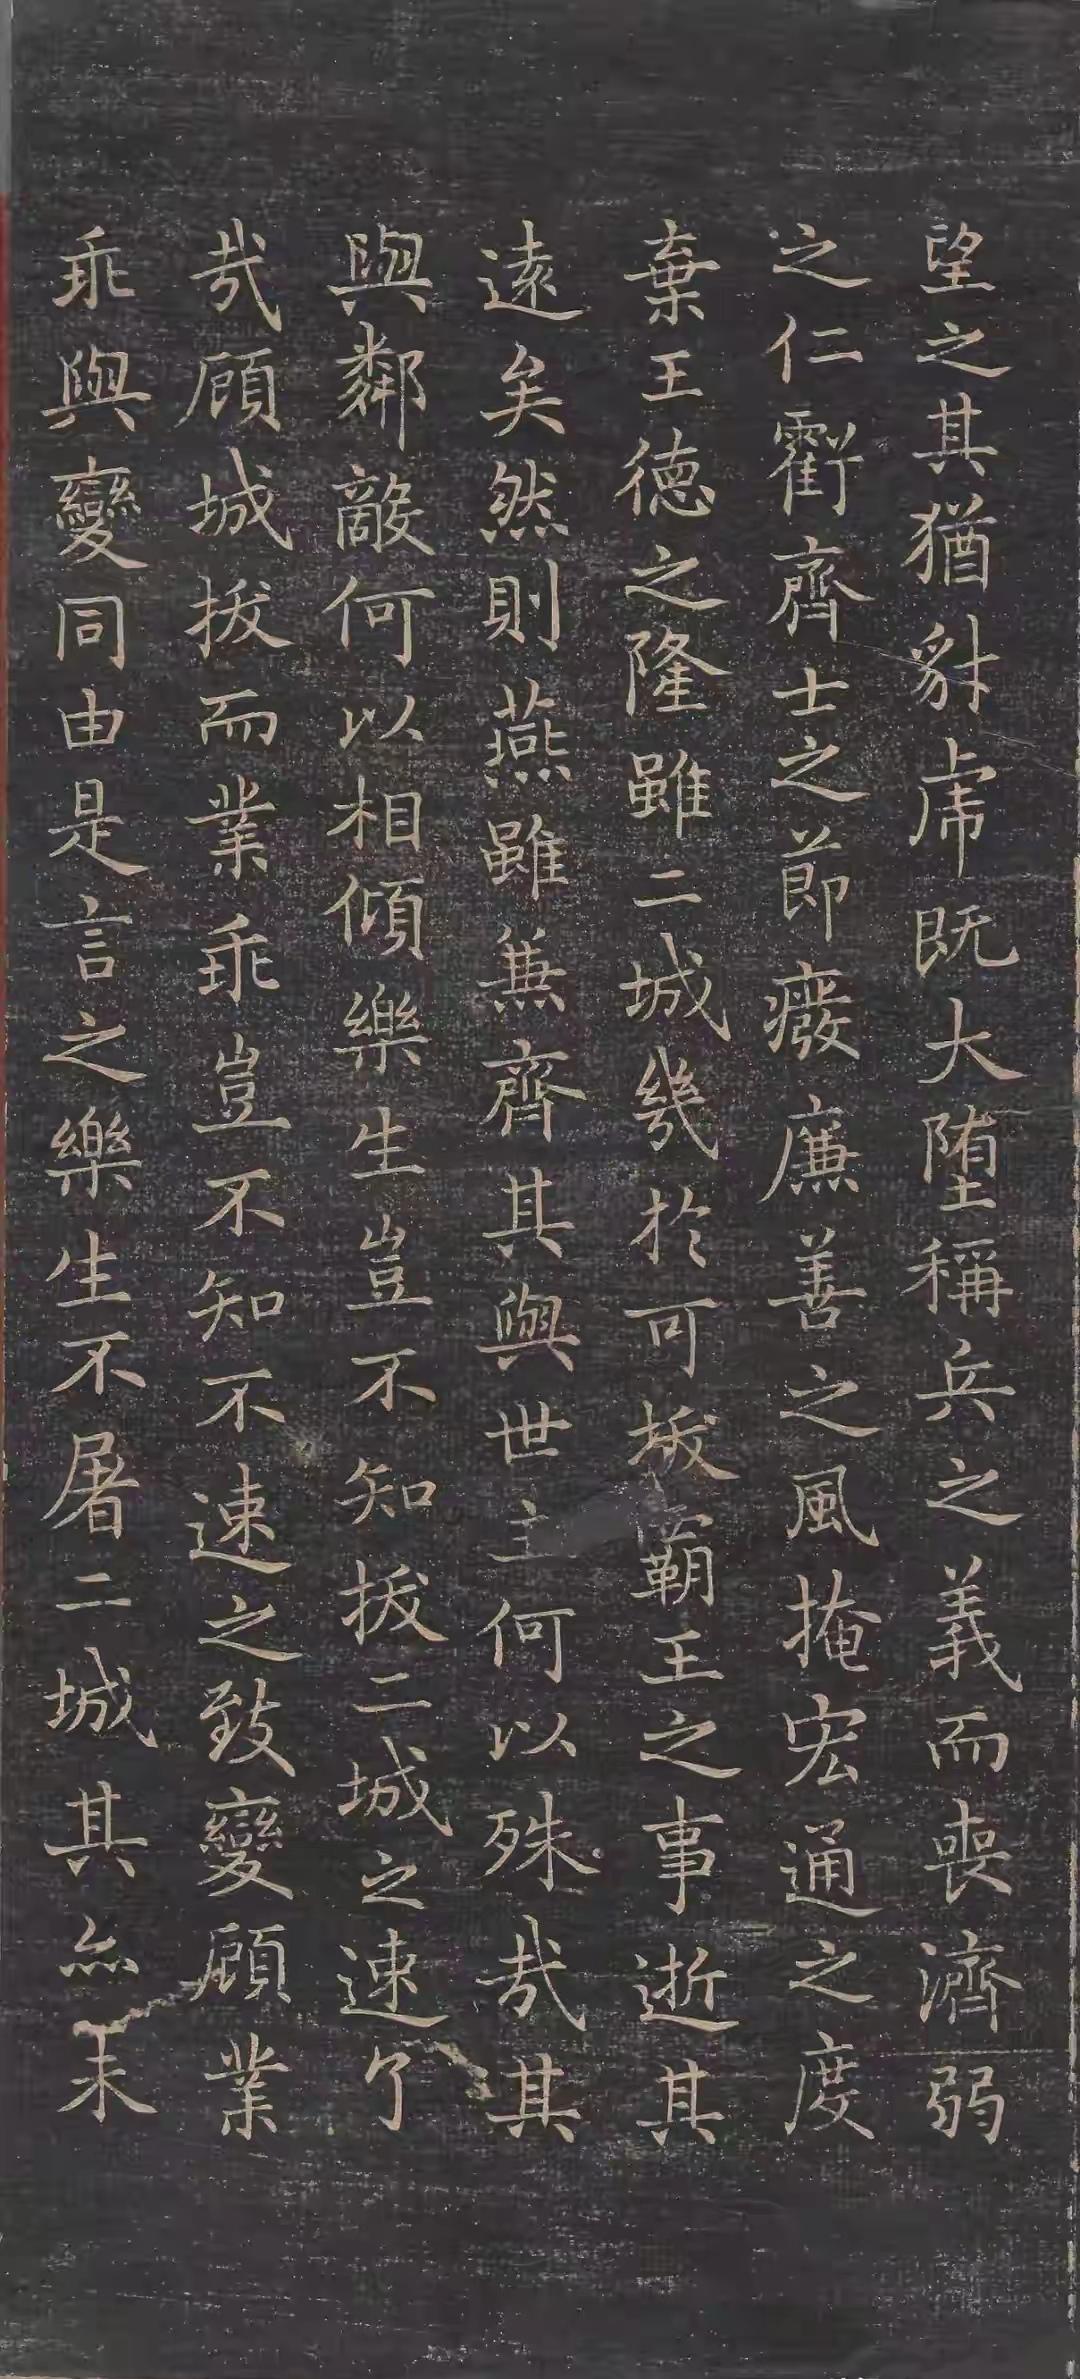 望之其猶豺虎既大墮稱兵之義而喪濟弱
之仁虧齊士之節癈廉善之風掩宏通之度
棄王德之隆雖二城幾於可拔霸王之事逝其
遠矣然則燕雖兼齊其與世主何以殊哉其
與鄰敵何以相傾樂生豈不知拔二城之速了
哉顧城拔而業乖豈不知不速之致變顧業
乖與變同由是言之樂生不屠二城其亦未